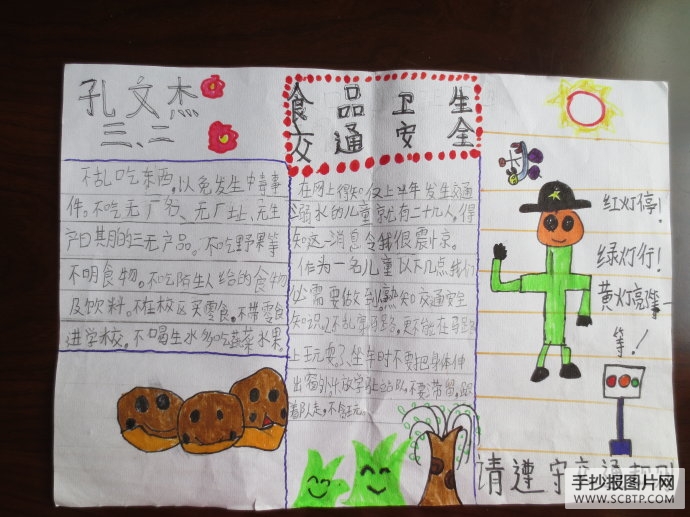 孔文杰
三、二
食品卫生
交通安全
不乱吃东西,以免发生中毒事
件。不吃无厂名、无厂址、无生
产日期的三无产品。不吃野果等
不明食物。不吃陌生人给的食物
及饮料。不在校区买零食。不带零食
进学校。不喝生水多吃蔬菜水果。
在网上得知仅上半年发生交通
溺水的儿童就有二十几人。得
知这一消息令我很震惊。
作为一名儿童以下几点我们
必需要做到。知交通安全
知识,不乱穿马路,更不能在马路
上玩耍、坐车时不要把身体伸
出窗外、放学站队,不要带留,跟
着队走,不
红灯停!
绿灯行!
黄灯亮等一
等!
请遵守交通规则
手抄报图片网
WWW.SCBTP.COM